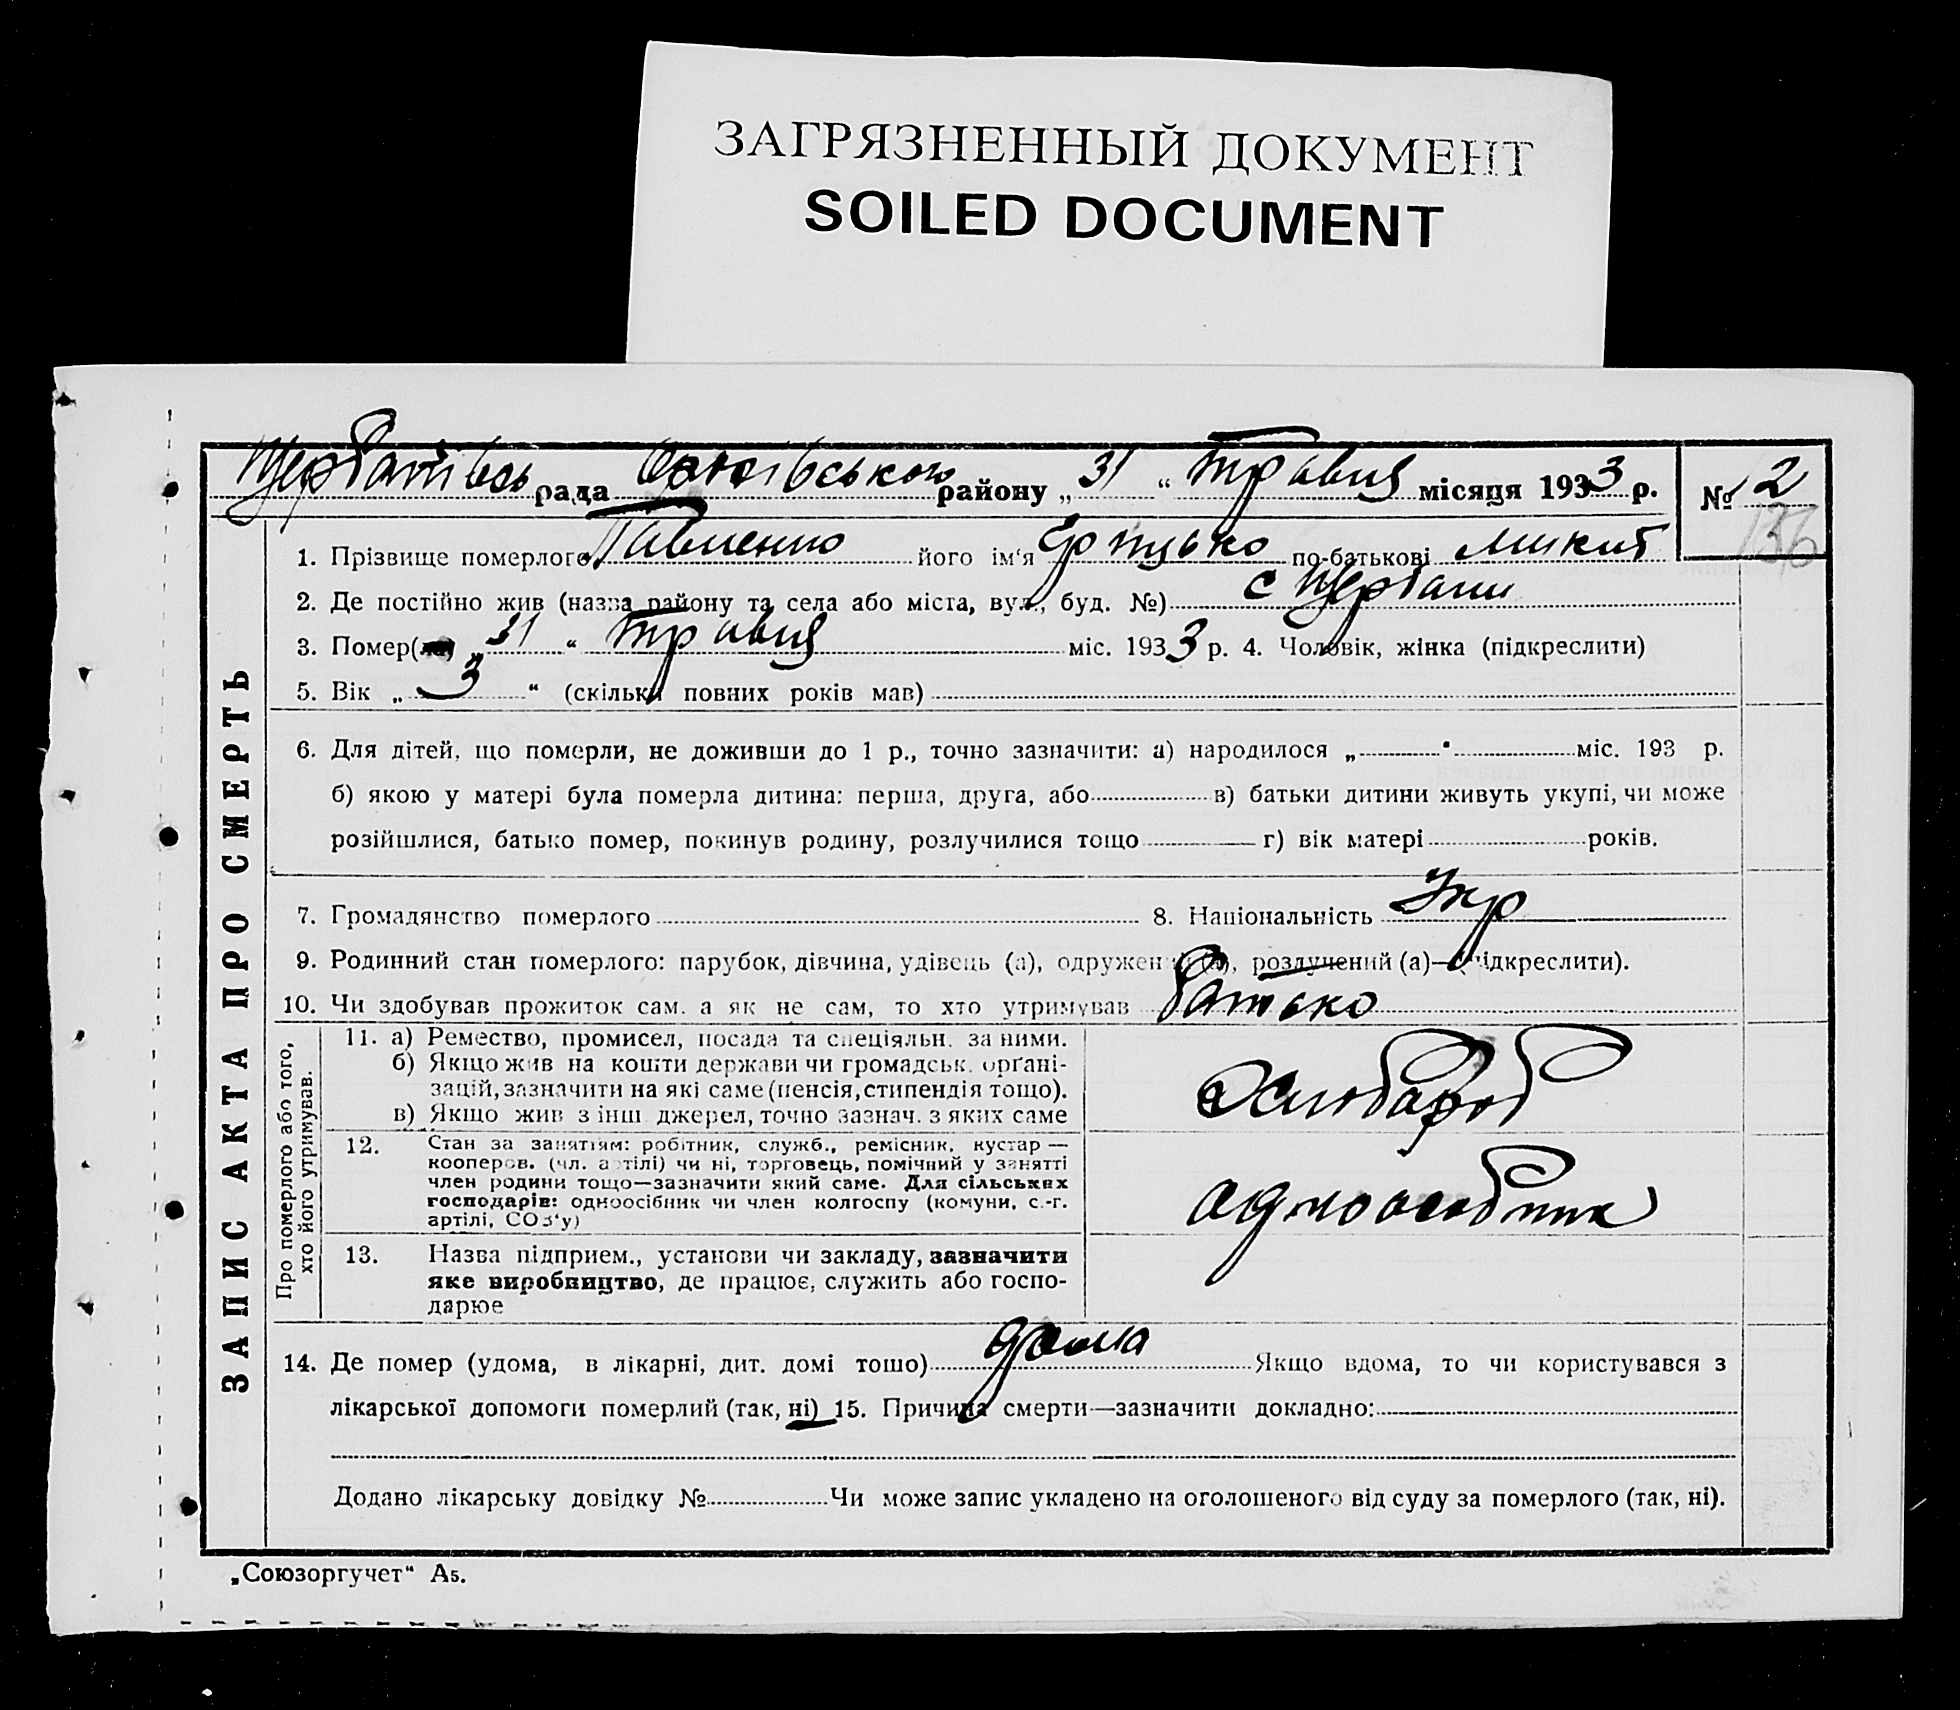 ЗАГРЯЗНЕННЫЙ ДОКУМЕНТ
SOILED DOCUMENT
рада району „ 31 “ травня місяця 1933 р. № 2
136
1. Прізвище померлого Павленко його ім‘я по-батькові Микит
2. Де постійно жив (назва району та села або міста, вул., буд. №) с Щербани
3. Помер(ла) „ 31 “ травня міс. 1933 р. 4. Чоловік, жінка (підкреслити)
5. Вік „ 3 “ (скільки повних років мав)
6. Для дітей, що померли, не доживши до 1 р., точно зазначити: а) народилося „ “ міс. 193 р.
б) якою у матері була померла дитина: перша, друга, або в) батьки дитини живуть укупі, чи може
розійшлися, батько помер, покинув родину, розлучилися тощо г) вік матері років.
7. Громадянство померлого 8. Національність Укр
9. Родинний стан померлого: парубок, дівчина, удівець (а), одружений (а), розлучений (а)—(підкреслити).
10. Чи здобував прожиток сам, а як не сам, то хто утримував батько
Про померлого або того,
хто його утримував.
11. а) Ремество, промисел, посада та спеціяльн. за ними.
б) Якщо жив на кошти держави чи громадськ. орґані-
зацій, зазначити на які саме (пенсія, стипендія тощо).
в) Якщо жив з інш. джерел, точно зазнач. з яких саме
Хлібороб
12. Стан за заняттям: робітник, служб., ремісник, кустар —
кооперов. (чл. артілі) чи ні, торговець, помічний у занятті
член родини тощо—зазначити який саме. Для сільських
господарів: одноосібник чи член колгоспу (комуни, с.-г.
артілі, СОЗ‘у)
одноосібник
13. Назва підприєм., установи чи закладу, зазначити
яке виробництво, де працює, служить або госпо-
дарює
14. Де помер (удома, в лікарні, дит. домі тощо) дома Якщо вдома, то чи користувався з
лікарської допомоги померлий (так, ні) 15. Причина смерти—зазначити докладно:
Додано лікарську довідку № Чи може запис укладено на оголошеного від суду за померлого (так, ні).
ЗАПИС АКТА ПРО СМЕРТЬ
„Союзоргучет“ А5.